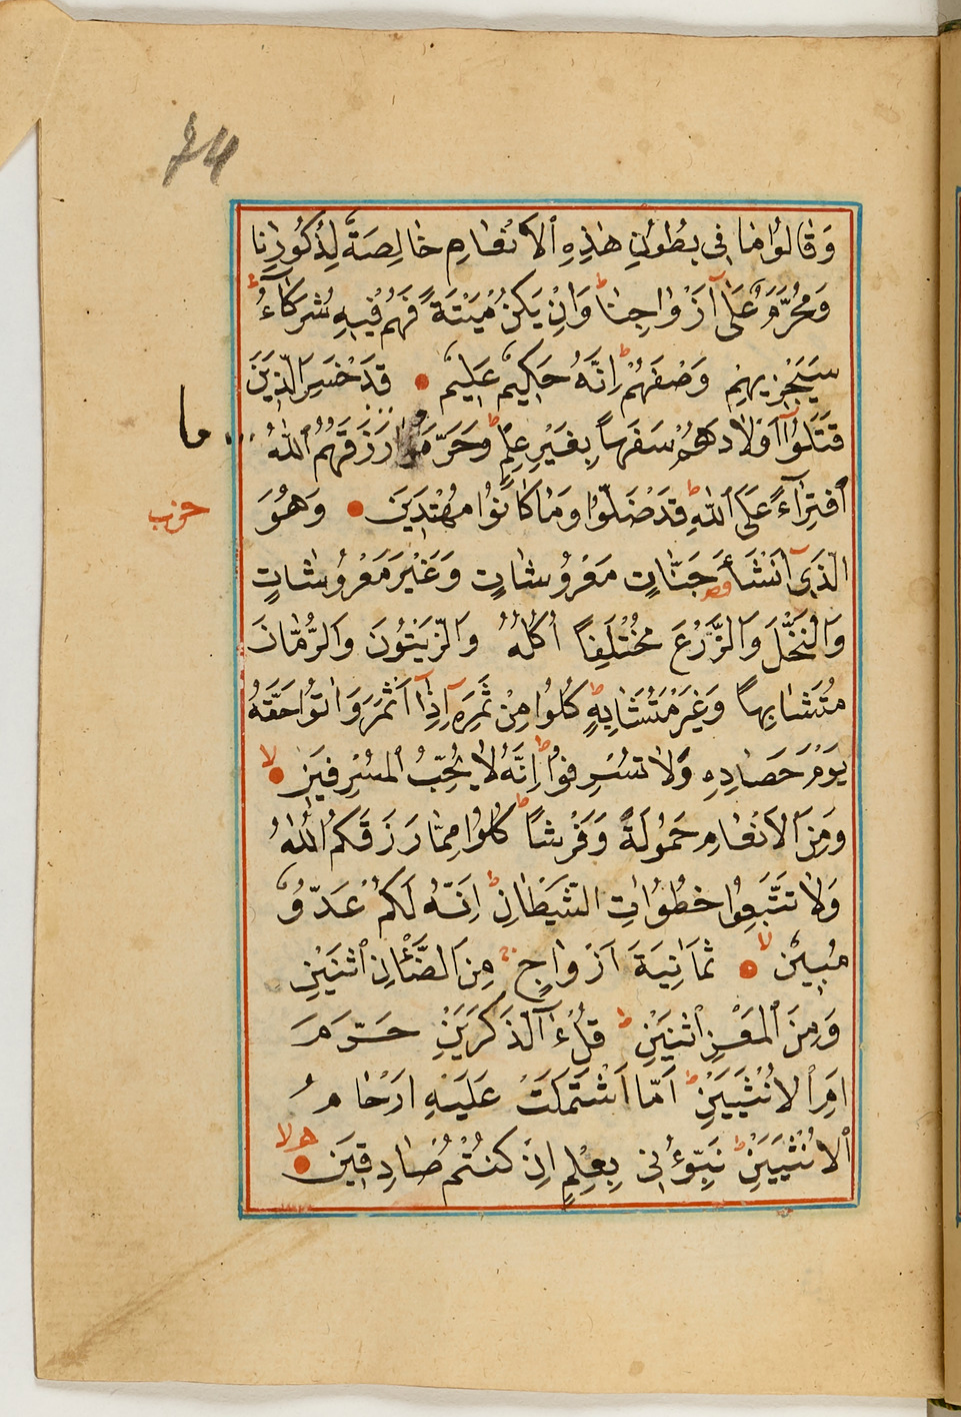 74
وَقَالُوا مَا فِي بُطُونِ هٰذِهِ ٱلْاَنْعَامِ خَالِصَةٌ لِذُكُورِنَا
وَمُحَرَّمٌ عَلٰٓى اَزْوَاجِنَا ط وَاِنْ يَكُنْ مَيْتَةً فَهُمْ فِيهِ شُرَكَآءُ ط
سَيَجْزِيهِمْ وَصْفَهُمْ ط اِنَّهُ حَكِيمٌ عَلِيمٌ قَدْ خَسِرَ الَّذِينَ
قَتَلُٓوا اَوْلَادَهُمْ سَفَهاً بِغَيْرِ عِلْمٍ وَحَرَّمُوا رَزَقَهُمُ ٱللّٰهُ
مَا
ٱفْتِرَآءً عَلَى ٱللّٰهِ ط قَدْ ضَلُّوا وَمَا كَانُوا مُهْتَدِينَ وَهُوَ
حزب
الَّذِٓي اَنْشَأَ جَنَّاتٍ مَعْرُوشَاتٍ وَغَيْرَ مَعْرُوشَاتٍ
وَالنَّخْلَ وَالزَّرْعَ مُخْتَلِفاً اُكُلُهُ وَالزَّيْتُونَ وَالرُّمَّانَ
مُتَشَابِهاً وَغَيْرَ مُتَشَابِهٍ ط كُلُوا مِنْ ثَمَرِهِ اِذَٓا اَثْمَرَ وَاٰتُوا حَقَّهُ
يَوْمَ حَصَادِهِ وَلَا تُسْرِفُوا ط اِنَّهُ لَا يُحِبُّ الْمُسْرِفِينَ لا
وَمِنَ ٱلْاَنْعَامِ حَمُولَةً وَفَرْشاً ط كُلُوا مِمَّا رَزَقَكُمُ اللّٰهُ
وَلَا تَتَّبِعُوا خُطُوَاتِ الشَّيْطَانِ ط اِنَّهُ لَكُمْ عَدُوٌّ
مُبِينٌ لا ثَمَانِيَةَ اَزْوَاجٍ ج مِنَ الضَّأْنِ ٱثْنَيْنِ
وَمِنَ ٱلْمَعْزِ ٱثْنَيْنِ ط قُلْ ءَٓالذَّكَرَيْنِ حَرَّمَ
اَمِ ٱلْاُنْثَيَيْنِ ط اَمَّا اشْتَمَلَتْ عَلَيْهِ اَرْحَامُ
ٱلْاُنْثَيَيْنِ ط نَبِّؤُنِي بِعِلْمٍ اِنْ كُنْتُمْ صَادِقِينَ لا